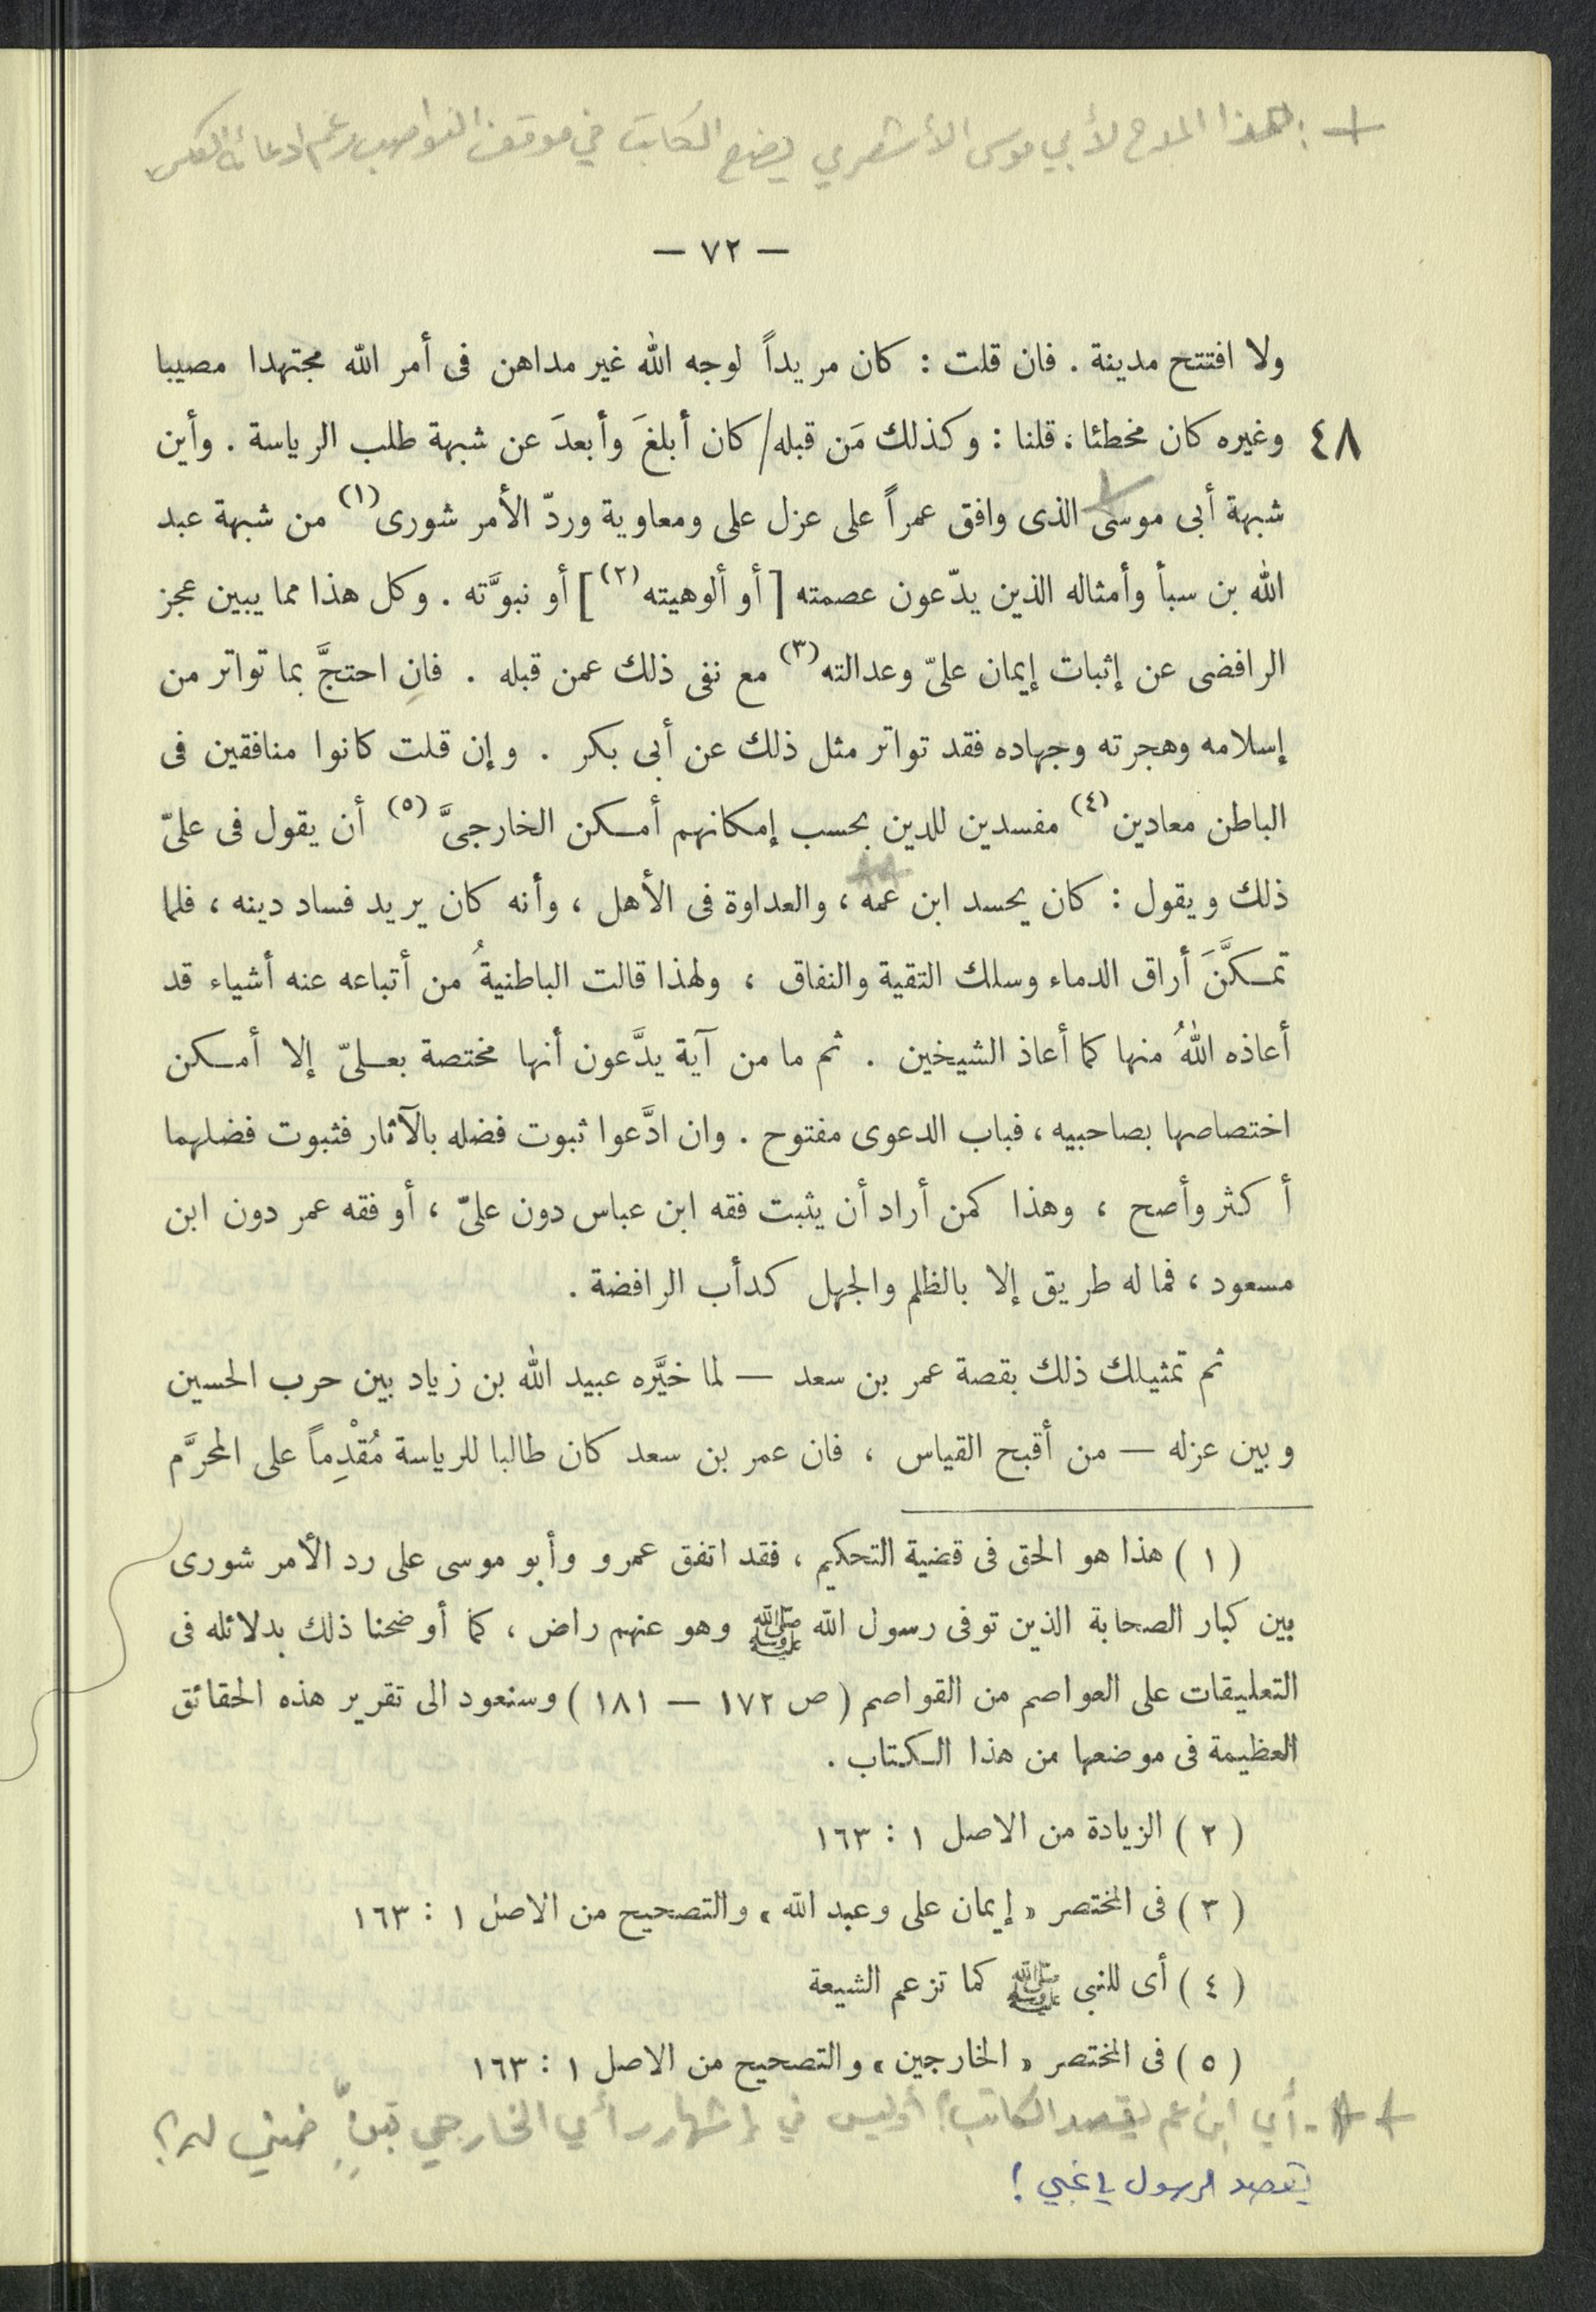 + : هذا المدح لأبي موسى الأشعري يضع الكاتب في موقف النواصب رغم ادعائه العكس
— ٧٢ —
ولا افتتح مدينة . فان قلت : كان مريداً لوجه الله غير مداهن فى أمر الله مجتهدا مصيبا
٤٨ وغيره كان مخطئا ، قلنا : وكذلك مَن قبله/ كان أبلغَ وأبعدَ عن شبهة طلب الرياسة . وأين
شبهة أبى موسى الذى وافق عمراً على عزل على ومعاوية وردّ الأمر شورى(١) من شبهة عبد
الله بن سبأ وأمثاله الذين يدّعون عصمته [ أو ألوهيته(٢) ] أو نبوَّته . وكل هذا مما يبين عجز
الرافضى عن إثبات إيمان علىّ وعدالته(٣) مع نفى ذلك عمن قبله . فانِ احتجَّ بما تواتر من
إسلامه وهجرته وجهاده فقد تواتر مثل ذلك عن أبى بكر . وإن قلت كانوا منافقين فى
الباطن معادين(٤) مفسدين للدين بحسب إمكانهم أمكن الخارجىَّ(٥) أن يقول فى علىّ
ذلك ويقول : كان يحسد ابن عمه ، والعداوة فى الأهل ، وأنه كان يريد فساد دينه ، فلما
تمكَّنَ أراق الدماء وسلك التقية والنفاق ، ولهذا قالت الباطنيةُ من أتباعه عنه أشياء قد
أعاذه اللهُ منها كما أعاذ الشيخين . ثم ما من آية يدَّعون أنها مختصة بعلىّ إلا أمكن
اختصاصها بصاحبيه ، فباب الدعوى مفتوح . وان ادَّعوا ثبوت فضله بالآثار فثبوت فضلهما
أكثر وأصح ، وهذا كمن أراد أن يثبت فقه ابن عباس دون علىّ ، أو فقه عمر دون ابن
مسعود ، فما له طريق إلا بالظلم والجهل كدأب الرافضة .
ثم تمثيلك ذلك بقصة عمر بن سعد — لما خيَّره عبيد الله بن زياد بين حرب الحسين
وبين عزله — من أقبح القياس ، فان عمر بن سعد كان طالبا للرياسة مُقْدِماً على المحرَّم
( ١ ) هذا هو الحق فى قضية التحكيم ، فقد اتفق عمرو وأبو موسى على رد الأمر شورى
بين كبار الصحابة الذين توفى رسول الله ﷺ وهو عنهم راض ، كما أوضحنا ذلك بدلائله فى
التعليقات على العواصم من القواصم ( ص ١٧٢ — ١٨١ ) وسنعود الى تقرير هذه الحقائق
العظيمة فى موضعها من هذا الكتاب .
( ٢ ) الزيادة من الاصل ١ : ١٦٣
( ٣ ) فى المختصر « إيمان على وعبد الله » والتصحيح من الاصل ١ : ١٦٣
( ٤ ) أى للنبى ﷺ كما تزعم الشيعة
( ٥ ) فى المختصر « الخارجين » والتصحيح من الاصل ١ : ١٦٣
++ - أي ابن عم يقصد الكاتب؟! أوليس في إشهار رأي الخارجي تبنٍّ ضمني له؟
يقصد الرسول يا غبي !